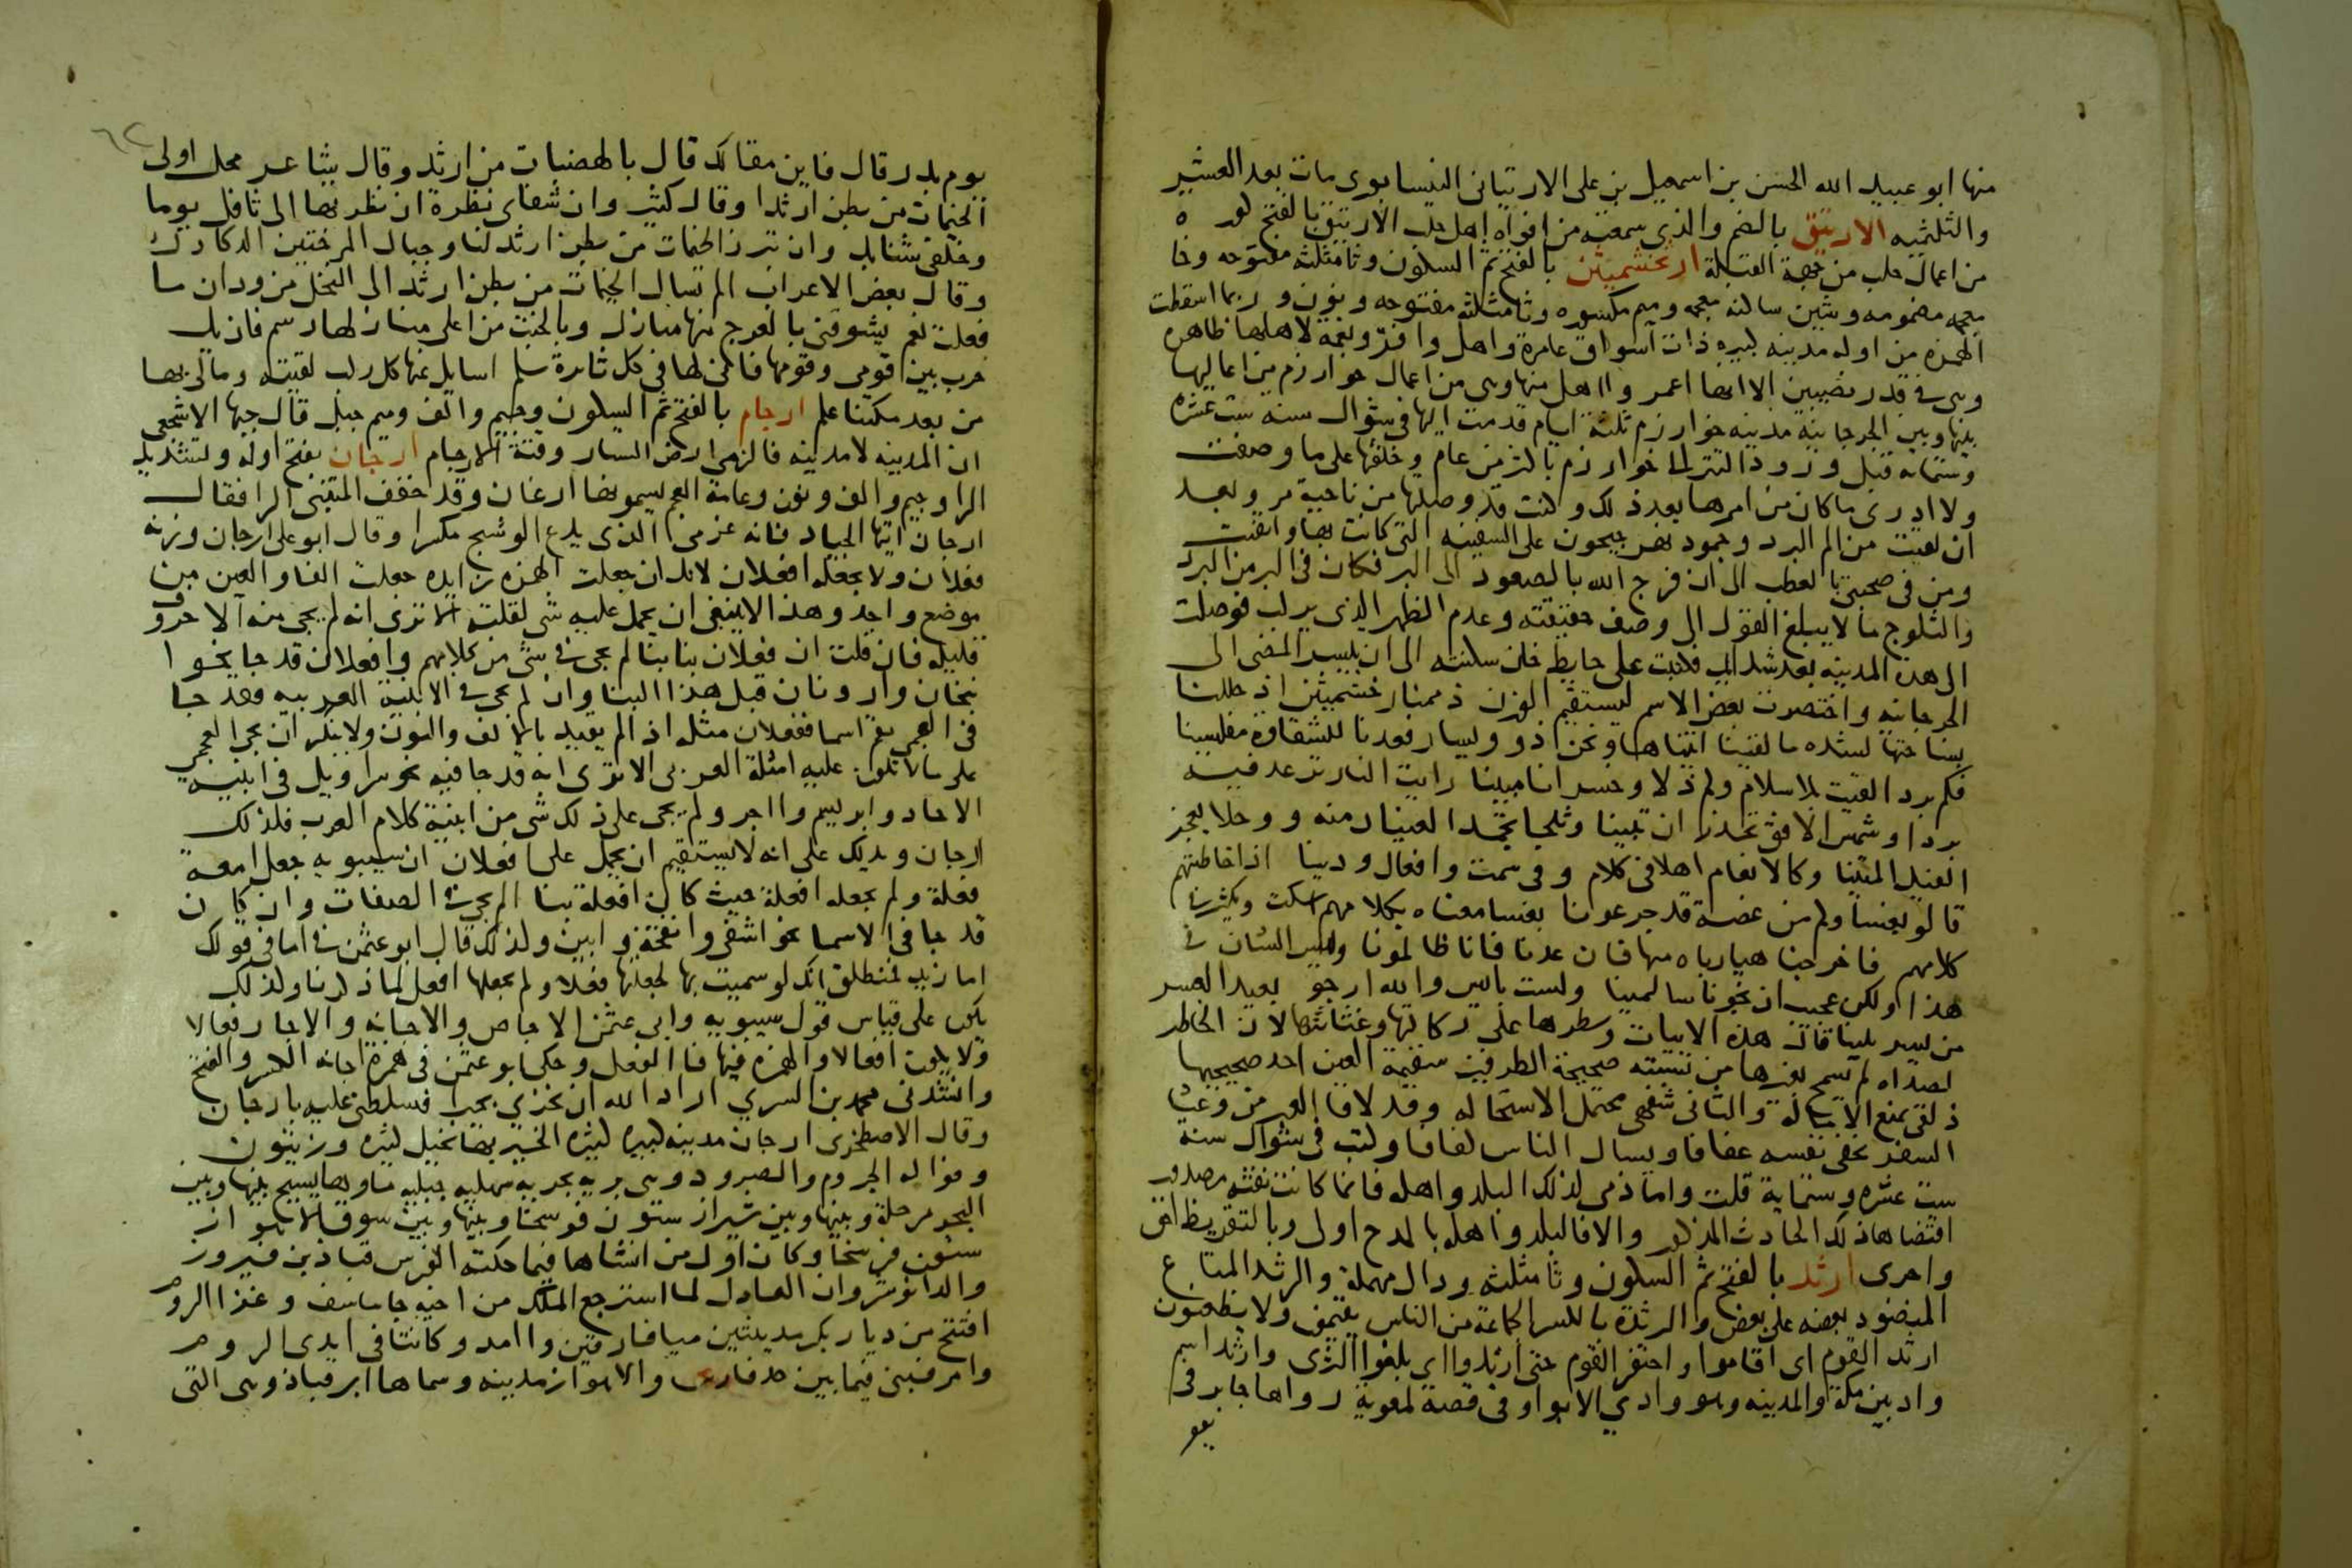 منها ابو عبيد الله الحسن بن اسمعيل بن على الارتيانى النيسابورى مات بعد العشر
والثلثميه الارتيق بالضم والذي سمعته من افواه اهل حلب الارتيق بالفتح كوره
من اعمال حلب من جهة القبلة ارخشميثن بالفتح ثم السكون وثا مثلثه مفتوحه وخا
معجمه مضمومه وشين ساكنه معجمه وميم مكسوره وثا مثلثه مفتوحه ونون وربما اسقطت
الهمزه من اوله مدينه كبيره ذات اسواق عامرة واهل وافر ونعمة لاهلها ظاهره
وهى في قدر نصيبين الا انها اعمر وااهل منها وهى من اعمال خوارزم من اعاليها
بينها وبين الجرجانيه مدينه خوارزم ثلثة ايام قدمت اليها في شوال سنه ست عشره
وستمايه قبل ورود التتر الى خوارزم باكثر من عام وخلفتها على ما وصفت
ولا ادرى ما كان من امرها بعد ذلك وكنت قد وصلتها من ناحية مرو بعد
ان لقيت من الم البرد وجمود نهر جيحون على السفينه التى كانت بها وايقنت
ومن في صحبتى بالعطب الى ان فرج الله بالصعود الى البر فكان في البر من البرد
والثلوج ما لا يبلغ القول الى وصف حقيقته وعدم الظهر الذي يركب فوصلت
الى هذه المدينه بعد شدايد فكتبت على حايط خان سكنته الى ان تيسر المضى الى
الجرجانيه واختصرت بعض الاسم ليستقيم الوزن ذممنا رخشميثن اذ حللنا
بساحتها لشده ما لقينا اتيناها ونحن ذوو يسار فعدنا للشقاوة مفلسينا
فكم بردا لقيت بلا سلام وكم ذلا وخسرانا مبينا رايت النار ترعد فيه
بردا وشمس الافق تحذر ان تبينا وثلجا تجمد العينان منه ووحلا يعجز
الفيل المتينا وكالانعام اهلا في كلام وفي سمت وافعال ودينا اذا خاطبتهم
قالو بفسا وكم من غصة قد جرعونا بفسا معناه بكلامهم اسكت ويكثر في
كلامهم فاخرجنا ايا رباه منها فان عدنا فانا ظالمونا وليس الشان في
هذا ولكن عجب ان نجونا سالمينا ولست بايس والله ارجو بعيد العسر
من يسر يلينا قال هذه الابيات وسطرها على ركاكتها وغثاثتها لان الخاطر
لصداه لم يسمح بغيرها من نسبته صحيحة الطرفين سقيمة العين احد صحيحيها
ذلقى يمنع الامالة والثانى شفهى محتمل الاستحاله وقد لاقا العبر من وعثا
السفر يخفى نفسه عفافا ويسال الناس لفافا وكتب في شوال سنه
ست عشره وستماية قلت واما ذمى لذلك البلد واهله فانما كانت نفثه مصدور
اقتضاها ذلك الحادث المذكور والا فالبلد واهله بالمدح اولى وبالتقريظ احق
واحرى ارثد بالفتح ثم السكون وثا مثلثه ودال مهملة والرثد المتاع
المنضود بعضه على بعض والرثدة بالكسر الجماعة من الناس يقيمون ولا يظعنون
ارثد القوم اى اقاموا واحتفر القوم حتى ارثدوا اى بلغوا الثرى وارثد اسم
واد بين مكة والمدينه وهو وادي الابوا وفي قصة لمعوية رواها جابر في
يوم بدر قال فاين مقالك قال بالهضبات من ارثد وقال شاعر محل اولى
الخيمات من بطن ارثدا وقال كثير وان شفاى نظرة ان نظرتها الى ثافل يوما
وخلفى شنايك وان تبرز الخيمات من بطن ارثد لنا وجبال المرختين الدكادك
وقال بعض الاعراب الم تسال الخيمات من بطن ارثد الى النخل من ودان ما
فعلت نعم يشوقنى بالعرج منها منازل وبالخبت من اعلى منازلها رسم فان يك
حرب بين قومى وقومها فانى لها في كل ثايرة سلم اسايل عنها كل ركب لقيته ومالى بها
من بعد مكتنا علم ارجام بالفتح ثم السكون وجيم والف وميم جبل قال جبها الاشجعى
ان المدينه لا مدينه فالزمى ارض الستار وقنة الارجام ارجان بفتح اوله وتشديد
الرا وجيم والف ونون وعامة العجم يسمونها ارغان وقد خفف المتنبى الرا فقال
ارجان ايتها الجياد فانه عزمى الذى يدع الوشيج مكسرا وقال ابو على ارجان وزنه
فعلان ولا تجعله افعلان لانك ان جعلت الهمزه زايده جعلت الفا والعين من
موضع واحد وهذا لا ينبغى ان يحمل عليه شى لقلته الا ترى انه لم يجى منه الا حروف
قليله فان قلت ان فعلان بنا بنا لم يجى في شى من كلامهم وافعلان قد جا نحو ا
نبخان وارونان قيل هذا البنا وان لم يجى في الابنية العربيه فقد جا
فى العجمى بقم اسما ففعلان مثله اذا لم يقيد بالالف والنون ولا ينكر ان يجى العجمى
على ما لا تكون عليه امثلة العربى الا ترى انه قد جا فيه نحو سراويل في ابنيه
الاحاد وابريسم وااجر ولم يجى على ذلك شى من ابنية كلام العرب فلذلك
ارجان ويدلك على انه لا يستقيم ان يحمل على افعلان ان سيبويه جعل امعة
فعلة ولم يجعله افعلة حيث كان افعلة بنا لم يجى في الصفات وان كان
قد جا في الاسما نحو اشفى وانفحة وابين ولذلك قال ابو عثمن في اما في قولك
اما زيد فمنطلق انك لو سميت بها لجعلتها فعلا ولم تجعلها افعل لما ذكرنا ولذلك
يكون على قياس قول سيبويه وابى عثمن الاجاص والاجانه والاجار فعالا
ولا يكون افعالا والهمزه فيها فا الفعل وحكى ابو عثمن في همزة اجانه الكسر والفتح
وانشدنى محمد بن السري اراد الله ان يخزي بجيرا فسلطنى عليه بارجان
وقال الاصطخرى ارجان مدينه كبيره كثيره الخير بها نخيل كثيره وزيتون
وفواكه الجروم والصرود وهى بريه بحريه سهليه جبليه ماوها يسيح بينها وبين
البحر مرحلة وبينها وبين شيراز ستون فرسخا وبينها وبين سوق الاهواز
ستون فرسخا وكان اول من انشاها فيما حكته الفرس قباذ بن فيروز
والد انوشروان العادل لما استرجع الملك من اخيه جاماسف وغزا الروم
افتتح من ديار بكر مدينتين ميافارقين واامد وكانتا في ايدى الروم
وامر فبنى فيما بين حد فارس والاهواز مدينه وسماها ابرقباذ وهى التى